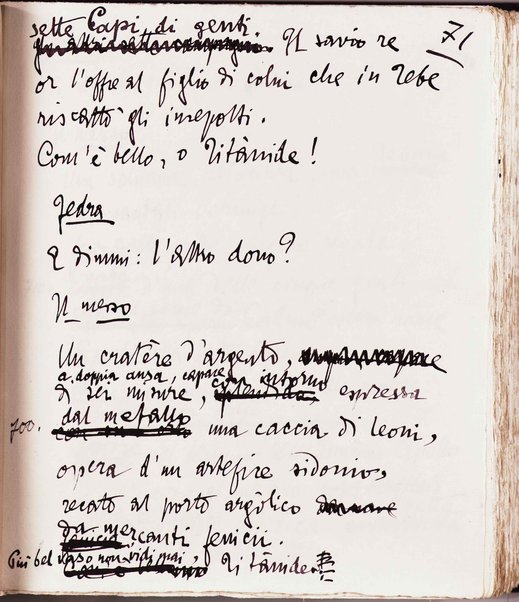 71
sette Capi di genti. Il savio re
or l'offre al figlio di colui che in Tebe
riscattò gli insepolti.
Com'è bello, o Titànide!
Fedra
E dimmi: l'altro dono?
Il messo
Un cratère d'argento,
a doppia ansa, capace
di sei misure, con intorno espressa
700. dal metallo una caccia di leoni,
opera d'un artefice sidonio,
recato al porto argòlico
da mercanti fenicii.
Più bel vaso non vidi mai, Titànide.